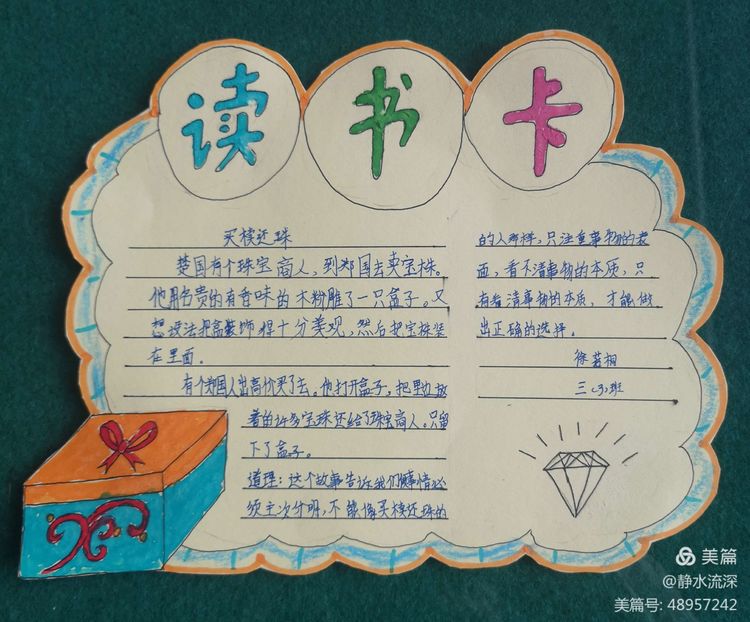 读书卡
买椟还珠
楚国有个珠宝商人，到郑国去卖宝株。
他用名贵的有香味的木粉雕了一只盒子。又
想设法把盒装饰得十分美观，然后把宝株装
在里面。
有个郑国人出高价买了去。他打开盒子，把里边放
着的许多宝珠还给了珠宝商人。只留
下了盒子。
道理：这个故事告诉我们做事情必
须主次分明，不能像买椟还珠的
的人那样，只注重事物的表
面，看不清事物的本质，只
有看清事物的本质，才能做
出正确的选择。
徐若相
三（3）班
美篇
@静水流深
美篇号: 48957242